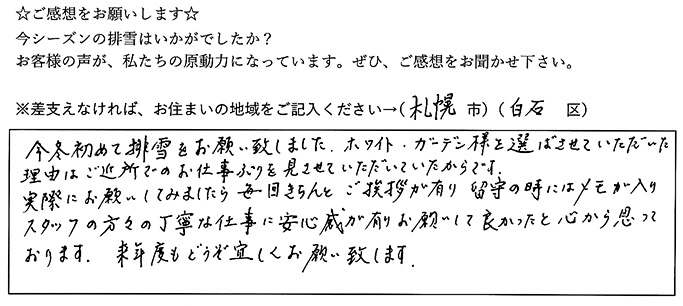 ☆ご感想をお願いします☆
今シーズンの排雪はいかがでしたか？
お客様の声が、私たちの原動力になっています。ぜひ、ご感想をお聞かせ下さい。
※差支えなければ、お住まいの地域をご記入ください→（札幌 市）（白石 区）
今冬初めて排雪をお願い致しました。ホワイト・ガーデン様を選ばさせていただいた
理由はご近所でのお仕事ぶりを見させていただいていたからです。
実際にお願いしてみましたら毎回きちんとご挨拶が有り留守の時にはメモが入り
スタッフの方々の丁寧な仕事に安心感が有りお願いして良かったと心から思って
おります。来年度もどうぞ宜しくお願い致します。